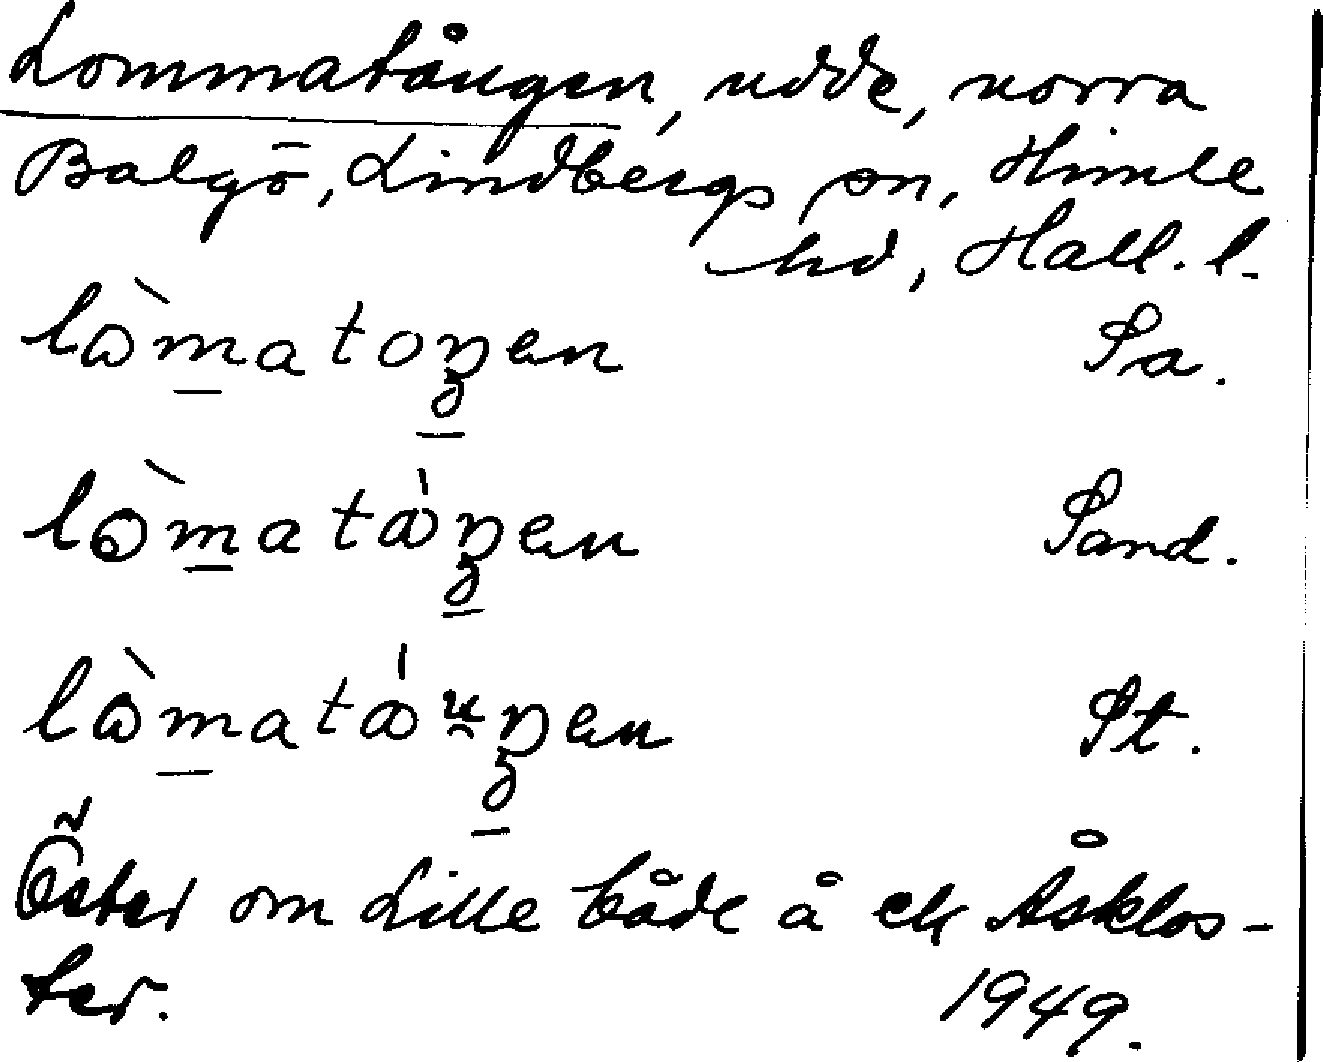 Lommatången, udde, norra
Balgö, Lindbergs sn, Himle
hd, Hall. l.
lòmatoŋen Sa.
lòmatàŋen Sand.
lòmatáuŋen St.
Öster om Lille både å ek Åsklos-
ter. 1949.